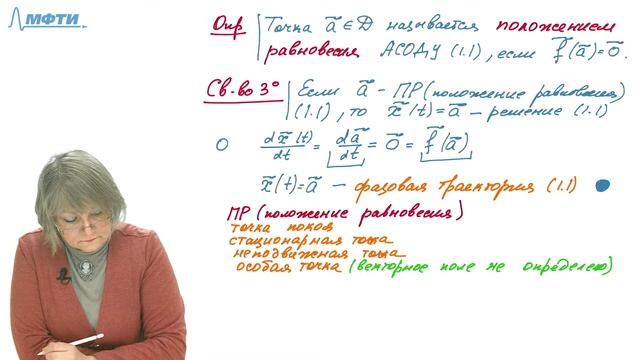 МФТИ
Опр Точка ã ∈ D называется положением
равновесия АСОДУ (1.1), если f̃(ã)=õ.
Св-во 3° Если ã - ПР (положение равновесия)
(1.1), то x̃(t)=ã - решение (1.1)
O dx̃(t)/dt = dã/dt = õ = f̃(ã)
x̃(t)=ã - фазовая траектория (1.1)
ПР (положение равновесия)
точка покоя
стационарная точка
неподвижная точка
особая точка (векторное поле не определено)